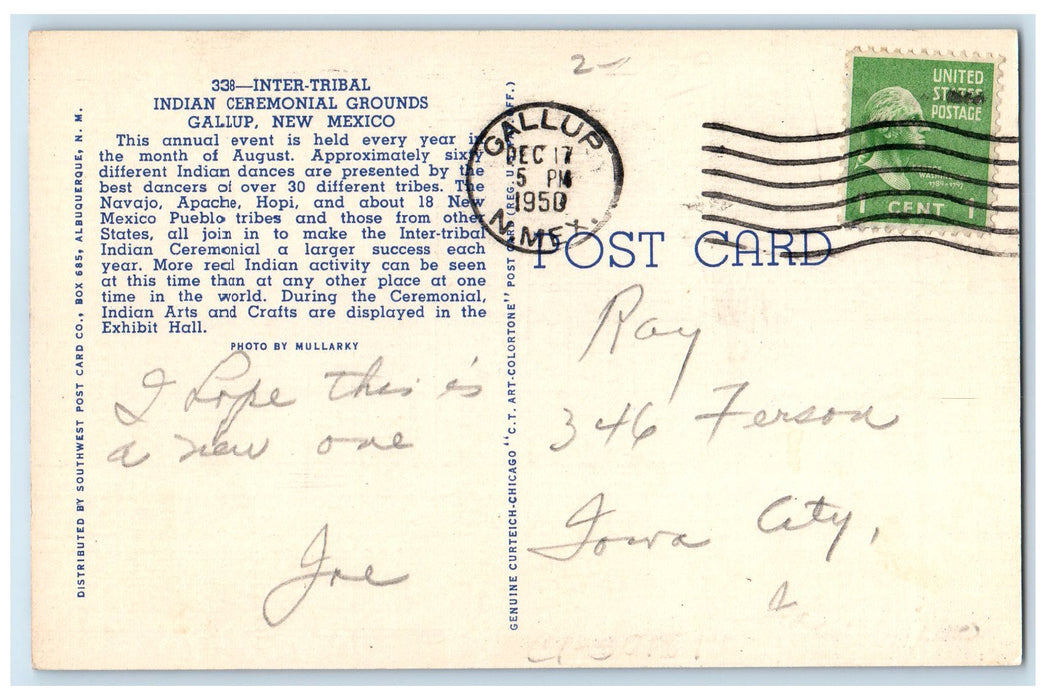 338—INTER-TRIBAL
INDIAN CEREMONIAL GROUNDS
GALLUP, NEW MEXICO
This annual event is held every year in
the month of August. Approximately sixty
different Indian dances are presented by the
best dancers of over 30 different tribes. The
Navajo, Apache, Hopi, and about 18 New
Mexico Pueblo tribes and those from other
States, all join in to make the Inter-tribal
Indian Ceremonial a larger success each
year. More real Indian activity can be seen
at this time than at any other place at one
time in the world. During the Ceremonial,
Indian Arts and Crafts are displayed in the
Exhibit Hall.
PHOTO BY MULLARKY
I hope this is
a new one
Joe
DISTRIBUTED BY SOUTHWEST POST CARD CO., BOX 685, ALBUQUERQUE, N. M.
GENUINE CURTEICH-CHICAGO "C.T. ART-COLORTONE" POST CARD (REG. U. S. PAT. OFF.)
2-
GALLUP
DEC 17
5 PM
1950
N. MEX.
UNITED
STATES
POSTAGE
1 CENT 1
POST CARD
Ray
346 Ferson
Iowa City,